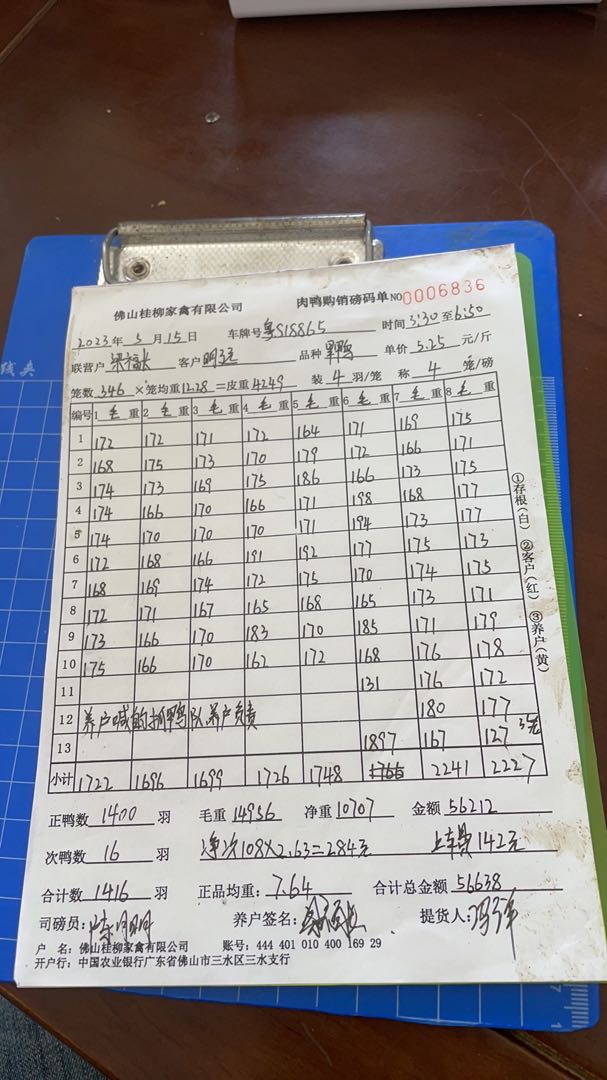 佛山桂柳家禽有限公司 肉鸭购销磅码单 NO 0006836
2023 年 5 月 15 日 车牌号 粤S18865 时间 3:30 至 6:50
联营户 梁福长 客户 品种 单价 5.25 元/斤
笼数 346 ×笼均重 12.28 =皮重 4249 装 4 羽/笼 称 4 笼/磅
编号 1 毛 重 2 毛 重 3 毛 重 4 毛 重 5 毛 重 6 毛 重 7 毛 重 8 毛 重
1 172 172 171 172 164 171 169 175
2 168 175 173 170 179 172 166 171
3 174 173 169 175 186 166 173 175
4 174 166 170 166 171 198 168 177
5 174 170 170 170 171 194 173 177
6 172 168 166 191 192 177 175 173
7 168 169 174 172 175 170 174 175
8 172 171 167 165 168 165 173 171
9 173 166 170 183 170 185 171 179
10 175 166 170 162 172 168 176 178
11 131 176 172
12 养户喊的抓鸭队养户负责 180 177
13 1897 167 127 3笼
小计 1722 1696 1699 1726 1748 1766 2241 2227
正鸭数 1400 羽 毛重 14956 净重 10707 金额 56212
次鸭数 16 羽 净次108×2.63=284元 上车费142元
合计数 1416 羽 正品均重: 7.64 合计总金额 56638
司磅员: 养户签名: 提货人:
户 名: 佛山桂柳家禽有限公司 账号: 444 401 010 400 169 29
开户行: 中国农业银行广东省佛山市三水区三水支行
①存根(白) ②客户(红) ③养户(黄)